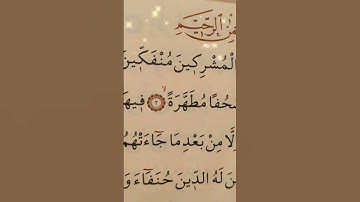 ٱلرَّحِيمِ
ٱلْمُشْرِكِينَ مُنْفَكِّينَ
مُطَهَّرَةً ۝٢ فِيهَا
إِلَّا مِنْ بَعْدِ مَا جَآءَتْهُمُ
لَهُ ٱلدِّينَ حُنَفَآءَ وَ